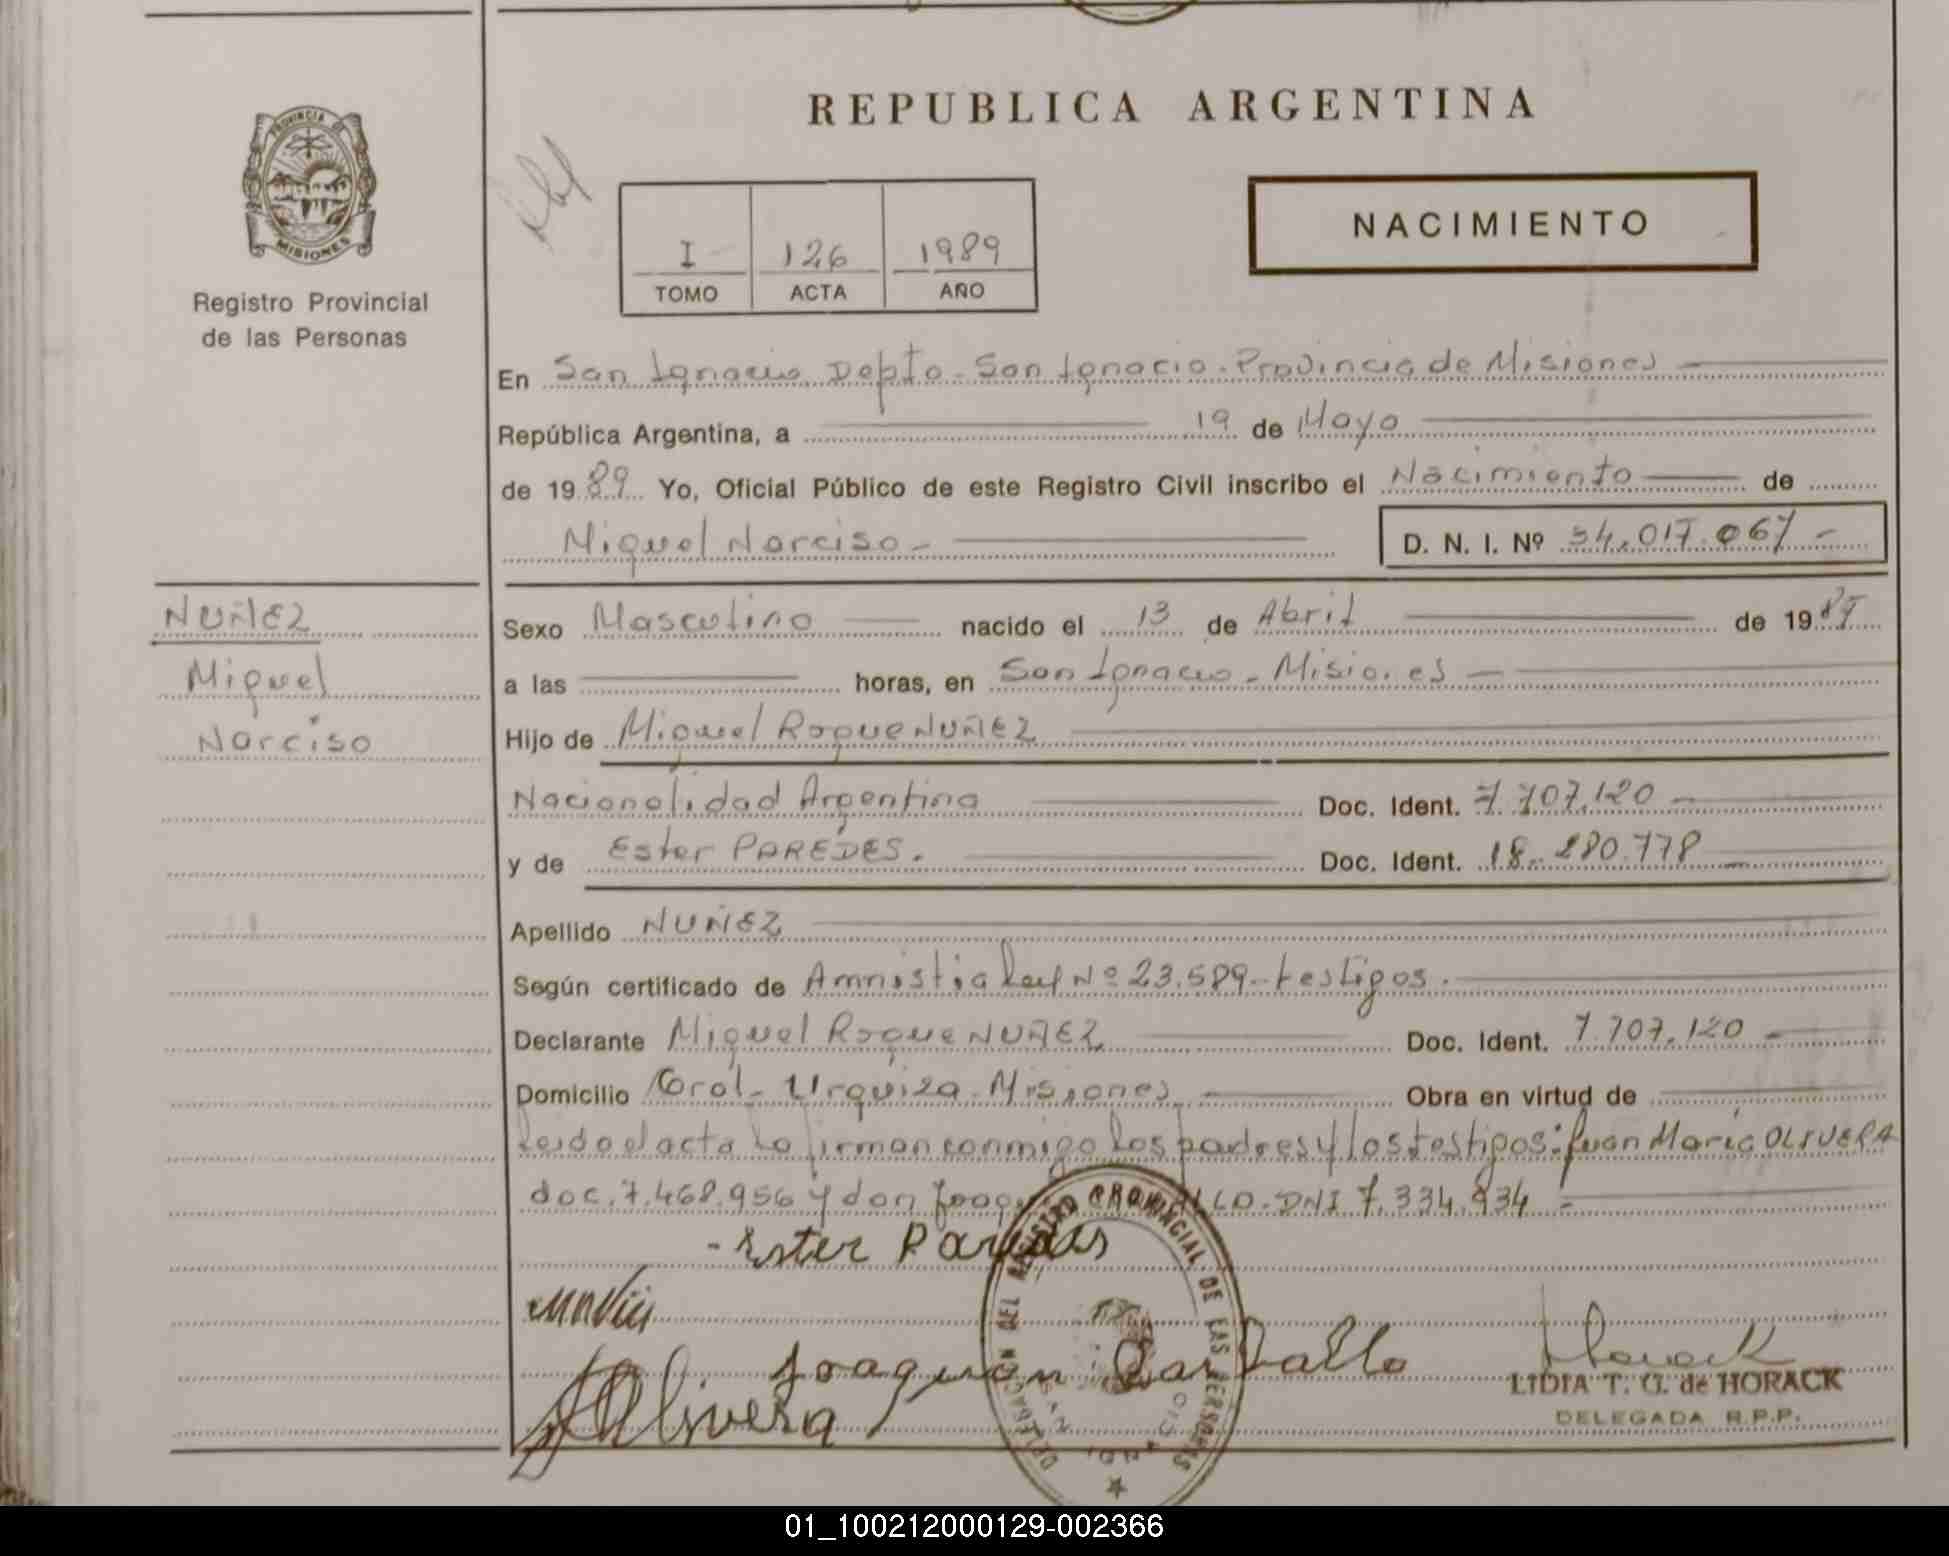 REPUBLICA ARGENTINA
PROVINCIA DE
MISIONES
Registro Provincial
de las Personas
I 126 1989
TOMO ACTA AÑO
NACIMIENTO
En San Ignacio Depto. San Ignacio. Provincia de Misiones
República Argentina, a 19 de Mayo
de 1989 Yo, Oficial Público de este Registro Civil inscribo el Nacimiento de
Miguel Narciso - D. N. I. Nº 34.017.067 -
NUÑEZ
Miguel
Narciso
Sexo Masculino nacido el 13 de Abril de 19
a las horas, en San Ignacio - Misiones -
Hijo de Miguel Roque NUÑEZ
Nacionalidad Argentina Doc. Ident. 7.707.120 -
y de Ester PAREDES. Doc. Ident. 18.280.778
Apellido NUÑEZ
Según certificado de Amnistia Ley Nº 23.589 - testigos.
Declarante Miguel Roque NUÑEZ Doc. Ident. 7.707.120 -
Domicilio Gral. Urquiza - Misiones Obra en virtud de
Leido el acta la firman conmigo los padres y los testigos: Juan Maria OLIVERA
doc. 7.468.956 y don DNI 7.334.934 -
- Ester Paredes
Joaquin Carballo
Olivera
LIDIA T. G. de HORACK
DELEGADA R.P.P.
DELEGACION DEL REGISTRO PROVINCIAL DE LAS PERSONAS
01_100212000129-002366